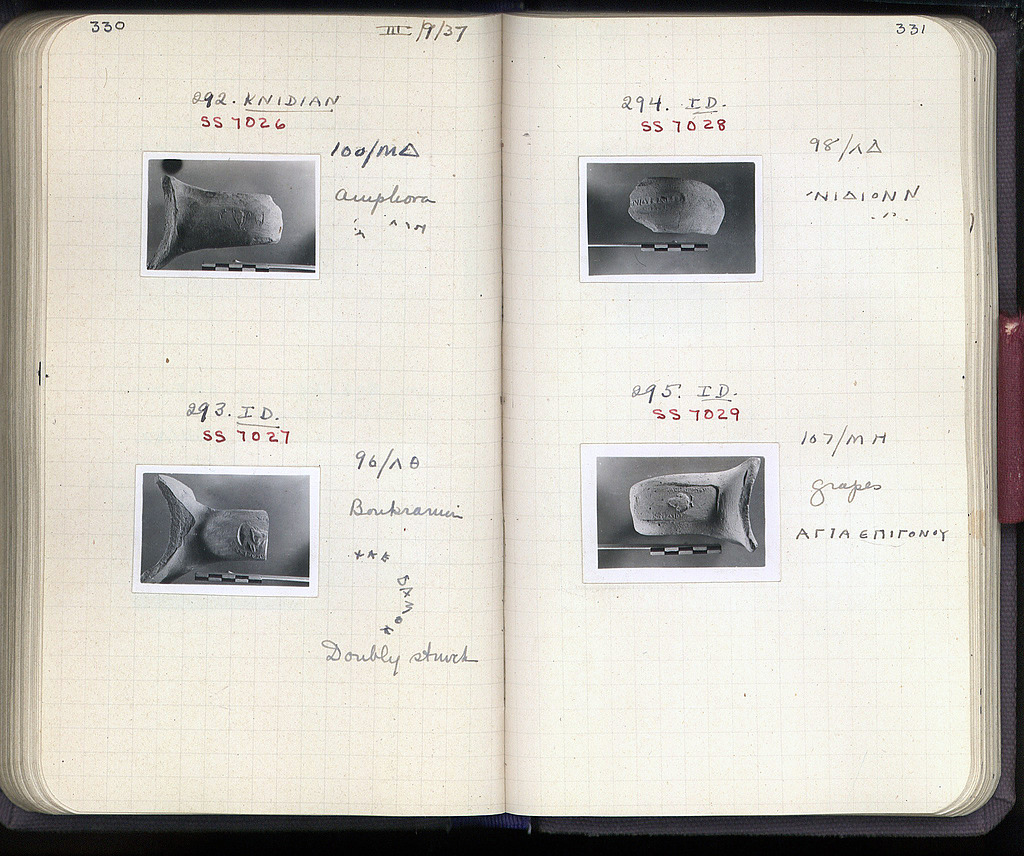 330
III/9/37
292. KNIDIAN
SS 7026
100/ΜΔ
Amphora
293. ID.
SS 7027
96/ΛΘ
Boukranion
ΔΑΜΟΚ
Doubly struck
331
294. ID.
SS 7028
98/ΛΔ
ΝΙΔΙΟΝΝ
295. ID.
SS 7029
107/ΜΗ
grapes
ΑΓΙΑ ΕΠΙΓΟΝΟΥ